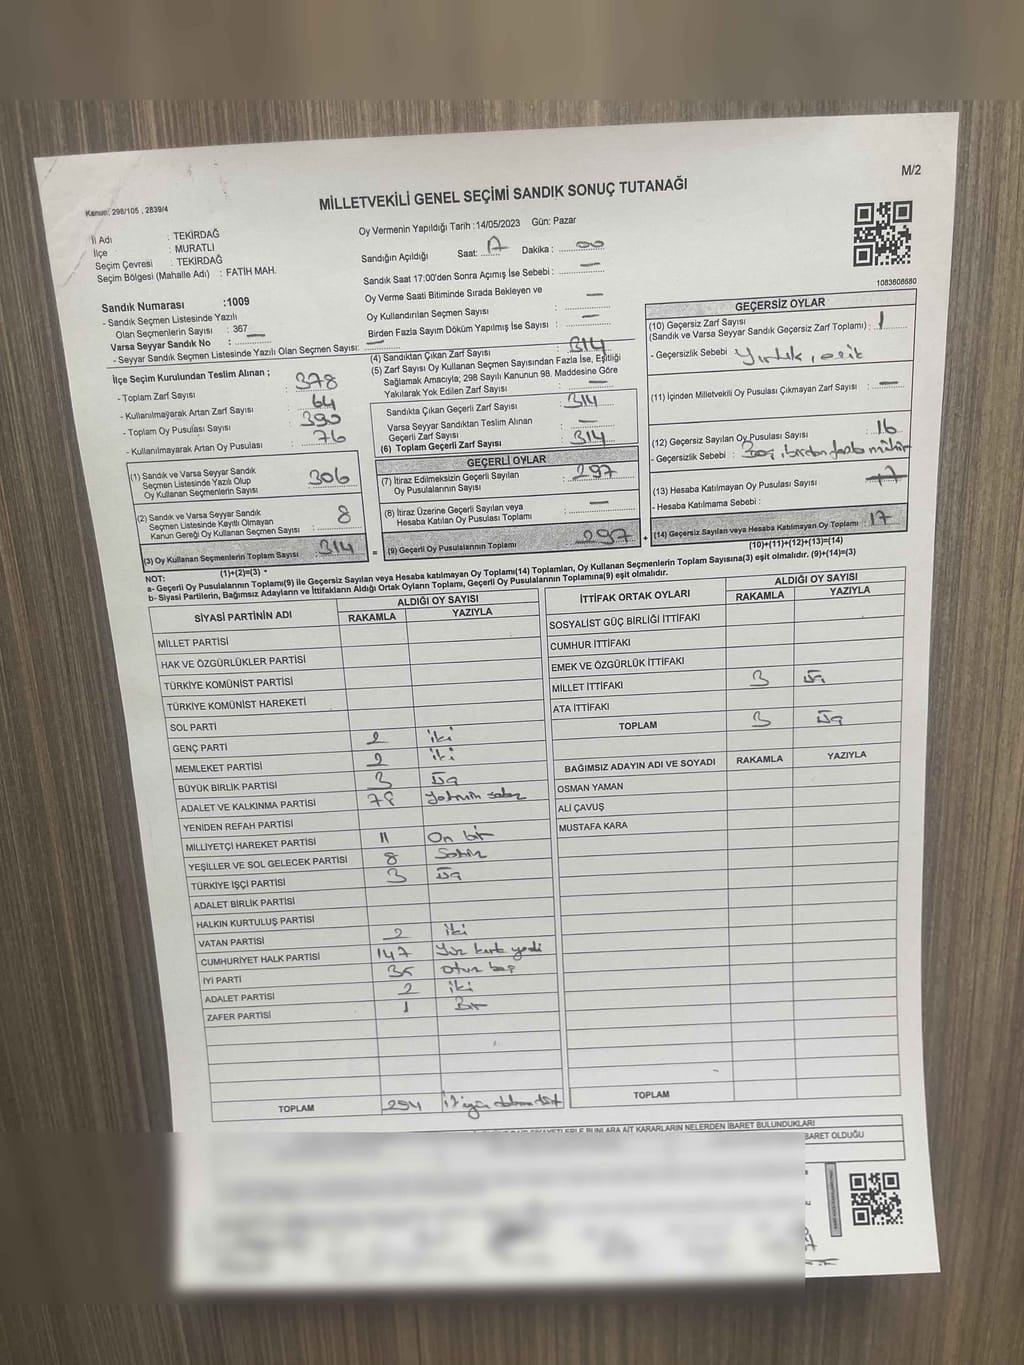 M/2
Kanun: 298/105 , 2839/4
MİLLETVEKİLİ GENEL SEÇİMİ SANDIK SONUÇ TUTANAĞI
İl Adı : TEKİRDAĞ
İlçe : MURATLI
Seçim Çevresi : TEKİRDAĞ
Seçim Bölgesi (Mahalle Adı) : FATİH MAH.
Oy Vermenin Yapıldığı Tarih :14/05/2023 Gün: Pazar
Sandığın Açıldığı Saat: Dakika : 00
Sandık Saat 17:00'den Sonra Açımış İse Sebebi : —
Oy Verme Saati Bitiminde Sırada Bekleyen ve
Oy Kullandırılan Seçmen Sayısı : —
Birden Fazla Sayım Döküm Yapılmış İse Sayısı : —
1083608680
Sandık Numarası :1009
- Sandık Seçmen Listesinde Yazılı
Olan Seçmenlerin Sayısı : 367
Varsa Seyyar Sandık No : —
- Seyyar Sandık Seçmen Listesinde Yazılı Olan Seçmen Sayısı: —
İlçe Seçim Kurulundan Teslim Alınan ;
- Toplam Zarf Sayısı : 378
- Kullanılmayarak Artan Zarf Sayısı : 64
- Toplam Oy Pusulası Sayısı : 390
- Kullanılmayarak Artan Oy Pusulası : 76
(1) Sandık ve Varsa Seyyar Sandık
Seçmen Listesinde Yazılı Olup
Oy Kullanan Seçmenlerin Sayısı : 306
(2) Sandık ve Varsa Seyyar Sandık
Seçmen Listesinde Kayıtlı Olmayan
Kanun Gereği Oy Kullanan Seçmen Sayısı : 8
(3) Oy Kullanan Seçmenlerin Toplam Sayısı : 314
(1)+(2)=(3)
(4) Sandıktan Çıkan Zarf Sayısı : 314
(5) Zarf Sayısı Oy Kullanan Seçmen Sayısından Fazla İse, Eşitliği
Sağlamak Amacıyla; 298 Sayılı Kanunun 98. Maddesine Göre
Yakılarak Yok Edilen Zarf Sayısı : —
Sandıkta Çıkan Geçerli Zarf Sayısı : 314
Varsa Seyyar Sandıktan Teslim Alınan
Geçerli Zarf Sayısı : —
(6) Toplam Geçerli Zarf Sayısı : 314
GEÇERLİ OYLAR
(7) İtiraz Edilmeksizin Geçerli Sayılan
Oy Pusulalarının Sayısı : 297
(8) İtiraz Üzerine Geçerli Sayılan veya
Hesaba Katılan Oy Pusulası Toplamı : —
= (9) Geçerli Oy Pusulalarının Toplamı : 297
GEÇERSİZ OYLAR
(10) Geçersiz Zarf Sayısı
(Sandık ve Varsa Seyyar Sandık Geçersiz Zarf Toplamı) : 1
- Geçersizlik Sebebi : Yırtık,
(11) İçinden Milletvekili Oy Pusulası Çıkmayan Zarf Sayısı : —
(12) Geçersiz Sayılan Oy Pusulası Sayısı : 16
- Geçersizlik Sebebi : Boş, birden fazla mühür
(13) Hesaba Katılmayan Oy Pusulası Sayısı :
- Hesaba Katılmama Sebebi :
+ (14) Geçersiz Sayılan veya Hesaba Katılmayan Oy Toplamı : 17
(10)+(11)+(12)+(13)=(14)
NOT:
a- Geçerli Oy Pusulalarının Toplamı(9) ile Geçersiz Sayılan veya Hesaba katılmayan Oy Toplamı(14) Toplamları, Oy Kullanan Seçmenlerin Toplam Sayısına(3) eşit olmalıdır. (9)+(14)=(3)
b- Siyasi Partilerin, Bağımsız Adayların ve İttifakların Aldığı Ortak Oyların Toplamı, Geçerli Oy Pusulalarının Toplamına(9) eşit olmalıdır.
SİYASİ PARTİNİN ADI ALDIĞI OY SAYISI
RAKAMLA YAZIYLA
MİLLET PARTİSİ
HAK VE ÖZGÜRLÜKLER PARTİSİ
TÜRKİYE KOMÜNİST PARTİSİ
TÜRKİYE KOMÜNİST HAREKETİ
SOL PARTİ
GENÇ PARTİ 2 iki
MEMLEKET PARTİSİ 2 iki
BÜYÜK BİRLİK PARTİSİ 3 Üç
ADALET VE KALKINMA PARTİSİ 78 Yetmiş sekiz
YENİDEN REFAH PARTİSİ
MİLLİYETÇİ HAREKET PARTİSİ 11 On bir
YEŞİLLER VE SOL GELECEK PARTİSİ 8 Sekiz
TÜRKİYE İŞÇİ PARTİSİ 3 Üç
ADALET BİRLİK PARTİSİ
HALKIN KURTULUŞ PARTİSİ
VATAN PARTİSİ 2 iki
CUMHURİYET HALK PARTİSİ 147 Yüz kırk yedi
İYİ PARTİ 35 Otuz beş
ADALET PARTİSİ 2 iki
ZAFER PARTİSİ 1 Bir
TOPLAM 294 İki yüz doksan dört
İTTİFAK ORTAK OYLARI ALDIĞI OY SAYISI
RAKAMLA YAZIYLA
SOSYALİST GÜÇ BİRLİĞİ İTTİFAKI
CUMHUR İTTİFAKI
EMEK VE ÖZGÜRLÜK İTTİFAKI
MİLLET İTTİFAKI 3 Üç
ATA İTTİFAKI
TOPLAM 3 Üç
BAĞIMSIZ ADAYIN ADI VE SOYADI RAKAMLA YAZIYLA
OSMAN YAMAN
ALİ ÇAVUŞ
MUSTAFA KARA
TOPLAM
BUNLARA AİT KARARLARIN NELERDEN İBARET BULUNDUKLARI
BARET OLDUĞU